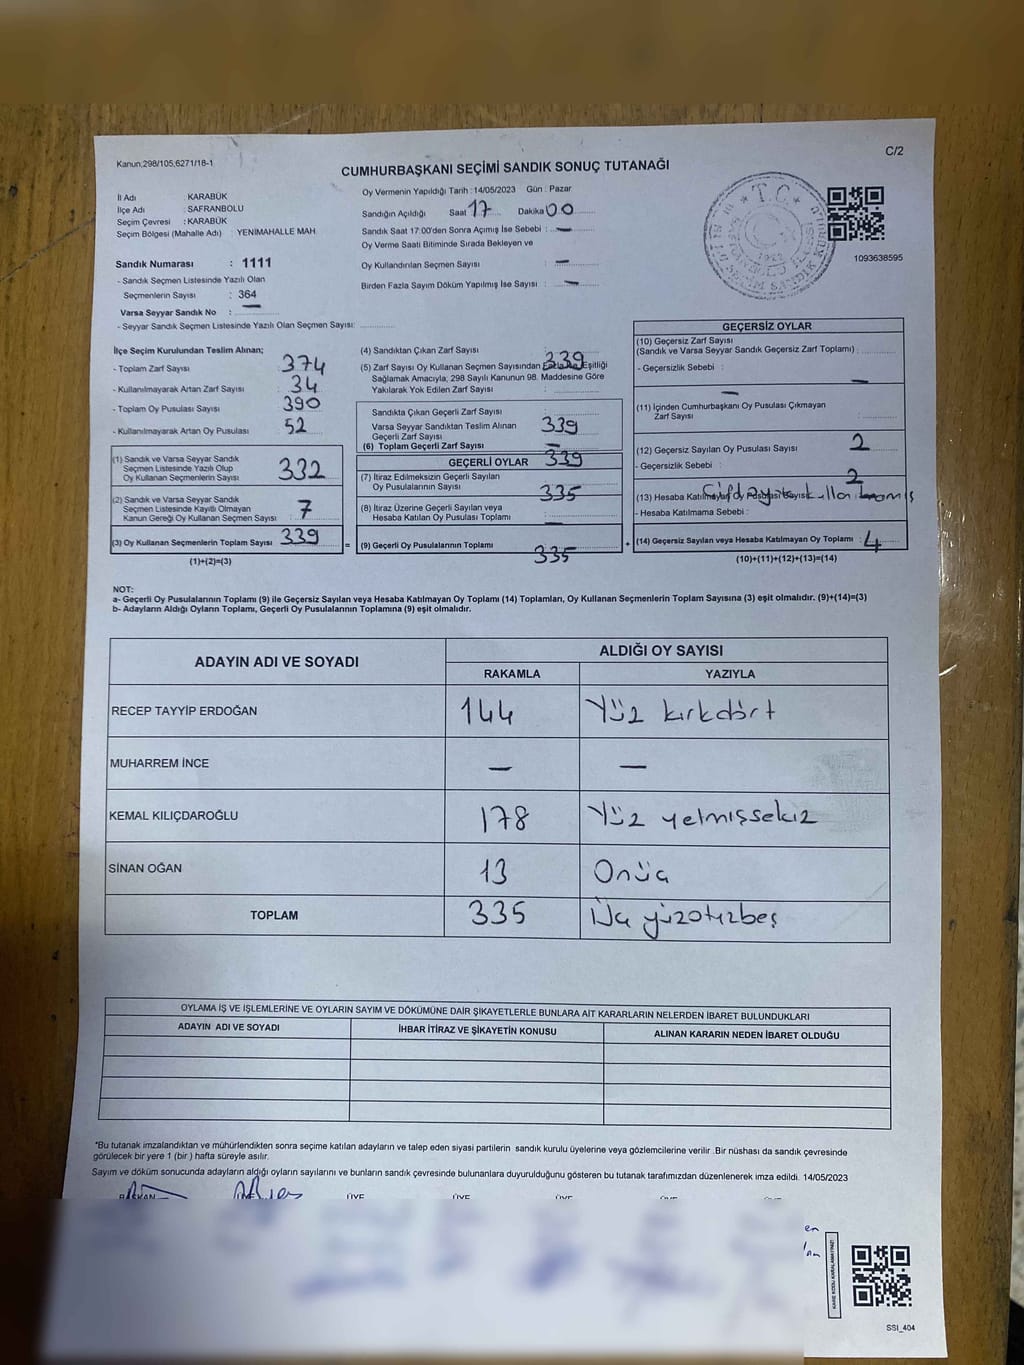 Kanun;298/105,6271/18-1
C/2
CUMHURBAŞKANI SEÇİMİ SANDIK SONUÇ TUTANAĞI
İl Adı : KARABÜK
İlçe Adı : SAFRANBOLU
Seçim Çevresi : KARABÜK
Seçim Bölgesi (Mahalle Adı) : YENIMAHALLE MAH.
Sandık Numarası : 1111
- Sandık Seçmen Listesinde Yazılı Olan
Seçmenlerin Sayısı : 364
Varsa Seyyar Sandık No : —
- Seyyar Sandık Seçmen Listesinde Yazılı Olan Seçmen Sayısı: ............
Oy Vermenin Yapıldığı Tarih : 14/05/2023 Gün : Pazar
Sandığın Açıldığı Saat 17 Dakika 00
Sandık Saat 17:00'den Sonra Açımış İse Sebebi : —
Oy Verme Saati Bitiminde Sırada Bekleyen ve
Oy Kullandırılan Seçmen Sayısı : —
Birden Fazla Sayım Döküm Yapılmış İse Sayısı : —
T.C.
1093638595
İlçe Seçim Kurulundan Teslim Alınan;
- Toplam Zarf Sayısı : 374
- Kullanılmayarak Artan Zarf Sayısı : 34
- Toplam Oy Pusulası Sayısı : 390
- Kullanılmayarak Artan Oy Pusulası : 52
(1) Sandık ve Varsa Seyyar Sandık
Seçmen Listesinde Yazılı Olup
Oy Kullanan Seçmenlerin Sayısı : 332
(2) Sandık ve Varsa Seyyar Sandık
Seçmen Listesinde Kayıtlı Olmayan
Kanun Gereği Oy Kullanan Seçmen Sayısı : 7
(3) Oy Kullanan Seçmenlerin Toplam Sayısı : 339
(1)+(2)=(3)
(4) Sandıktan Çıkan Zarf Sayısı : 339
(5) Zarf Sayısı Oy Kullanan Seçmen Sayısından Fazla İse Eşitliği
Sağlamak Amacıyla; 298 Sayılı Kanunun 98. Maddesine Göre
Yakılarak Yok Edilen Zarf Sayısı :
Sandıkta Çıkan Geçerli Zarf Sayısı :
Varsa Seyyar Sandıktan Teslim Alınan
Geçerli Zarf Sayısı : 339
(6) Toplam Geçerli Zarf Sayısı : —
GEÇERLİ OYLAR 339
(7) İtiraz Edilmeksizin Geçerli Sayılan
Oy Pusulalarının Sayısı : 335
(8) İtiraz Üzerine Geçerli Sayılan veya
Hesaba Katılan Oy Pusulası Toplamı : —
(9) Geçerli Oy Pusulalarının Toplamı : 335
GEÇERSİZ OYLAR
(10) Geçersiz Zarf Sayısı
(Sandık ve Varsa Seyyar Sandık Geçersiz Zarf Toplamı) :
- Geçersizlik Sebebi : —
—
(11) İçinden Cumhurbaşkanı Oy Pusulası Çıkmayan
Zarf Sayısı :
(12) Geçersiz Sayılan Oy Pusulası Sayısı : 2
- Geçersizlik Sebebi : 2
(13) Hesaba Katılmayan Oy Pusulası Sayısı
- Hesaba Katılmama Sebebi :
(14) Geçersiz Sayılan veya Hesaba Katılmayan Oy Toplamı : 4
(10)+(11)+(12)+(13)=(14)
NOT:
a- Geçerli Oy Pusulalarının Toplamı (9) ile Geçersiz Sayılan veya Hesaba Katılmayan Oy Toplamı (14) Toplamları, Oy Kullanan Seçmenlerin Toplam Sayısına (3) eşit olmalıdır. (9)+(14)=(3)
b- Adayların Aldığı Oyların Toplamı, Geçerli Oy Pusulalarının Toplamına (9) eşit olmalıdır.
ADAYIN ADI VE SOYADI ALDIĞI OY SAYISI
RAKAMLA YAZIYLA
RECEP TAYYİP ERDOĞAN 144 Yüz kırkdört
MUHARREM İNCE — —
KEMAL KILIÇDAROĞLU 178 Yüz yetmişsekiz
SİNAN OĞAN 13 Onüç
TOPLAM 335 Üç yüzotuzbeş
OYLAMA İŞ VE İŞLEMLERİNE VE OYLARIN SAYIM VE DÖKÜMÜNE DAİR ŞİKAYETLERLE BUNLARA AİT KARARLARIN NELERDEN İBARET BULUNDUKLARI
ADAYIN ADI VE SOYADI İHBAR İTİRAZ VE ŞİKAYETİN KONUSU ALINAN KARARIN NEDEN İBARET OLDUĞU
*Bu tutanak imzalandıktan ve mühürlendikten sonra seçime katılan adayların ve talep eden siyasi partilerin sandık kurulu üyelerine veya gözlemcilerine verilir .Bir nüshası da sandık çevresinde
görülecek bir yere 1 (bir ) hafta süreyle asılır.
Sayım ve döküm sonucunda adayların aldığı oyların sayılarını ve bunların sandık çevresinde bulunanlara duyurulduğunu gösteren bu tutanak tarafımızdan düzenlenerek imza edildi. 14/05/2023
BAŞKAN ÜYE ÜYE ÜYE ÜYE ÜYE
SSI_404